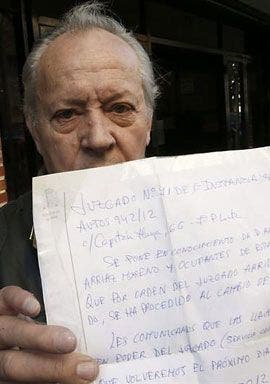 JUZGADO Nº 71 DE 1ª INSTANCIA
AUTOS 942/12
c/ Capitán Haya, 66 -
SE PONE EN CONOCIMIENTO DE D.
ARRIAZ MORENO Y OCUPANTES DE
QUE POR ORDEN DEL JUZGADO ARRI
DO, SE HA PROCEDIDO AL CAMBIO DE
LES COMUNICAMOS QUE LAS LLA
EN PODER DEL JUZGADO (
QUE VOLVEREMOS EL PRÓXIMO DÍA
2012